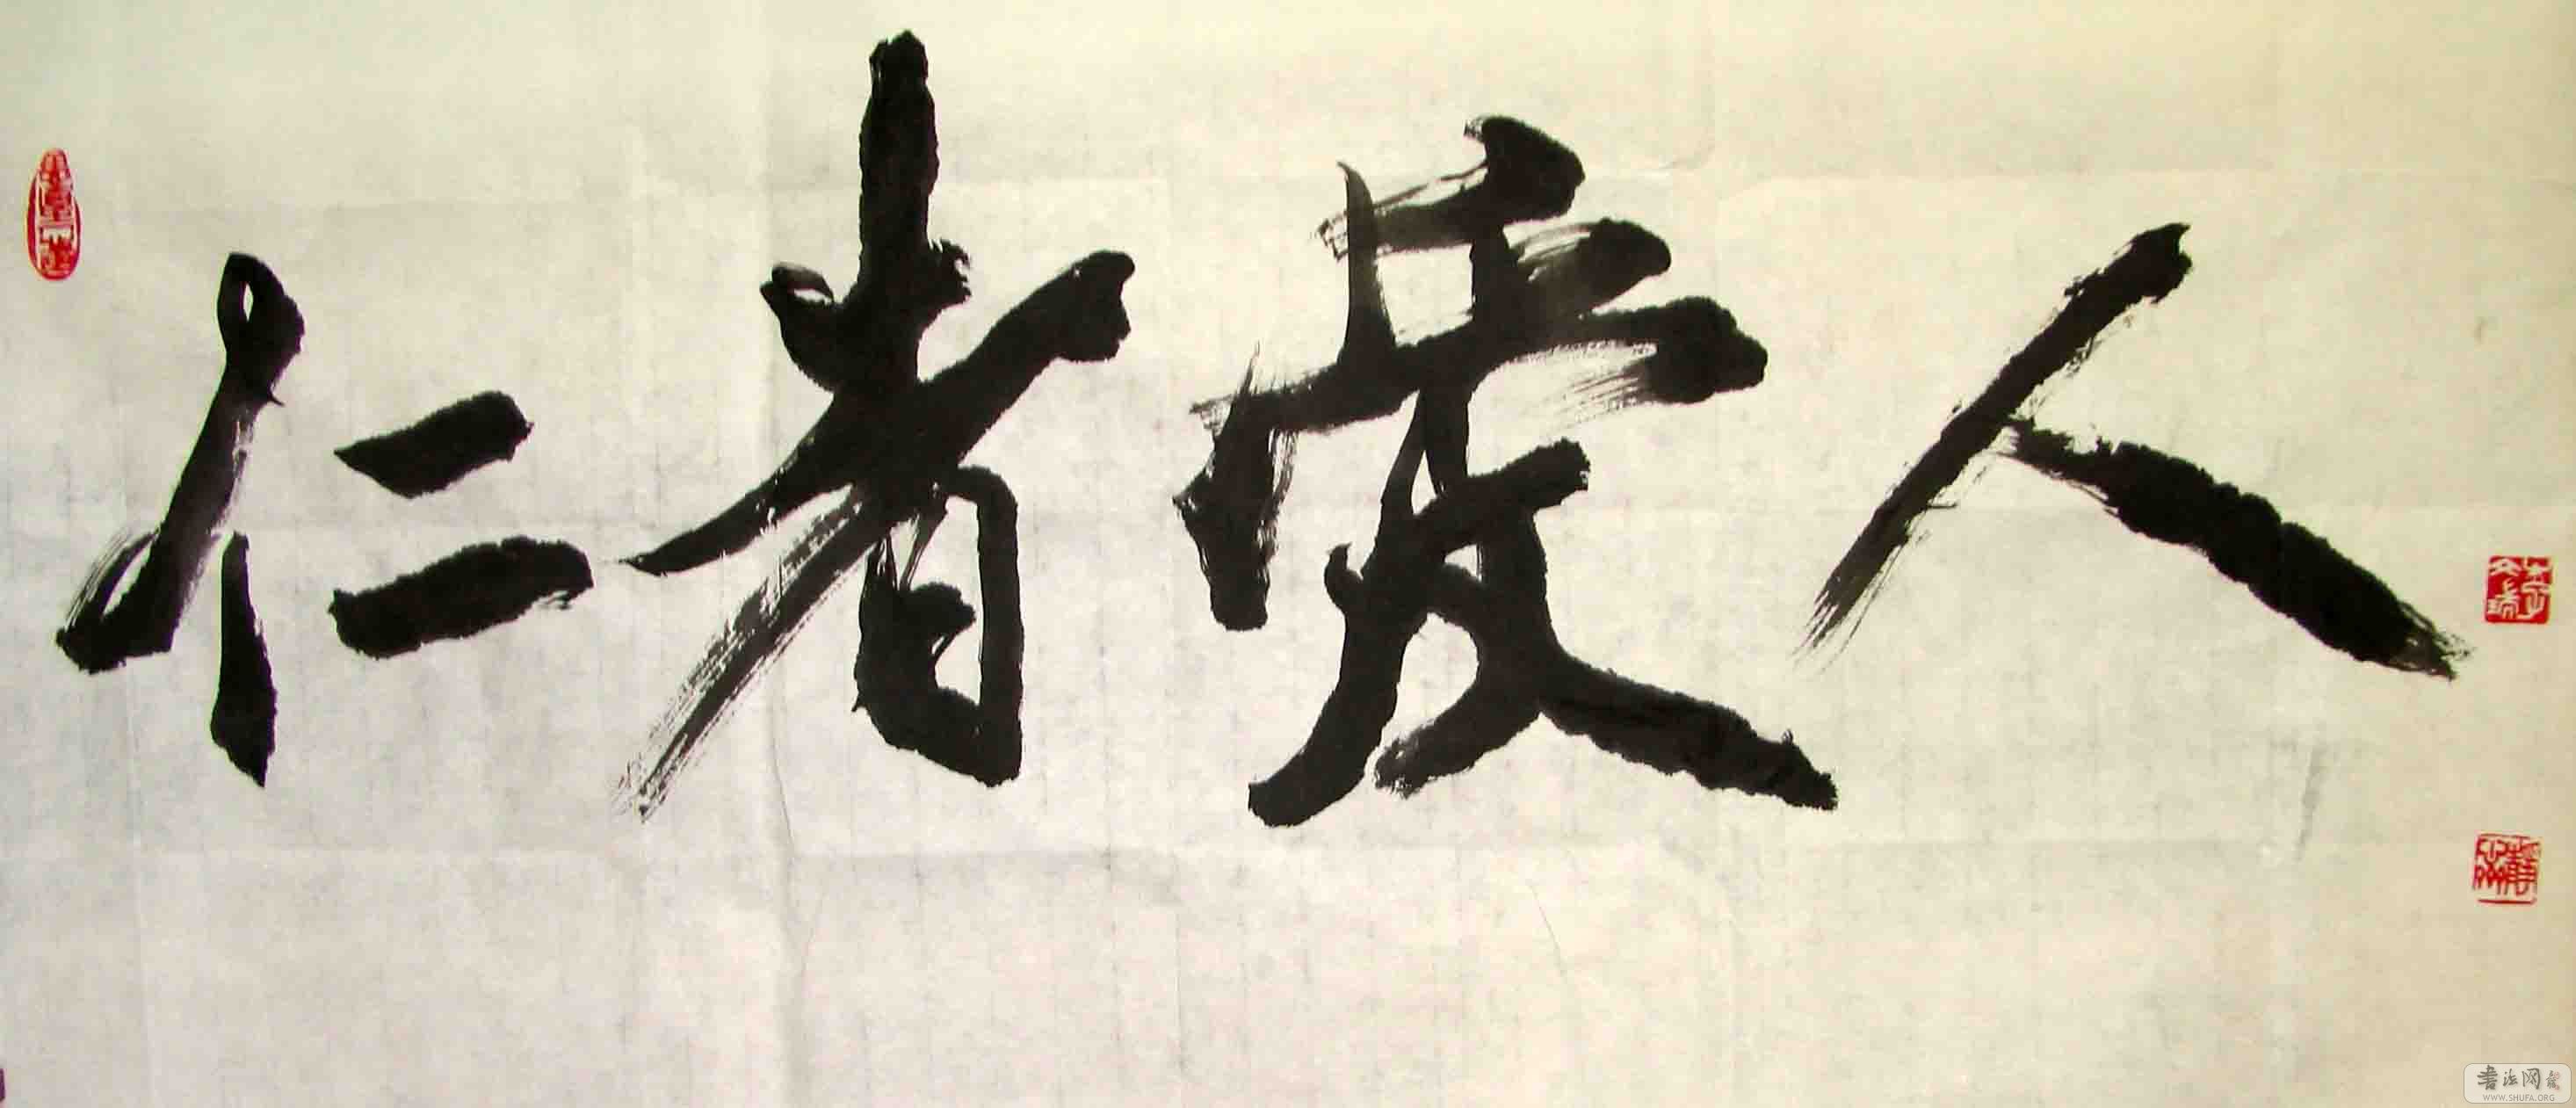 仁者爱人
书法网
WWW.SHUFA.ORG